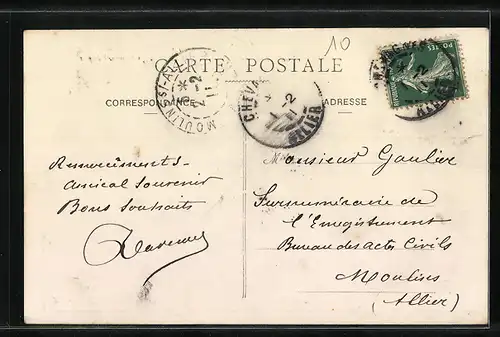 10
CARTE POSTALE
CORRESPONDANCE
ADRESSE
MOULINS S/ ALLIER
2
11
CHEV
2
11
ALLIER
ALLIER
Remerciements
Amical Souvenir
Bons Souhaits
Monsieur Gaulier
Surnuméraire de
l'Enregistrement
Bureau des Actes Civils
Moulins
(Allier)